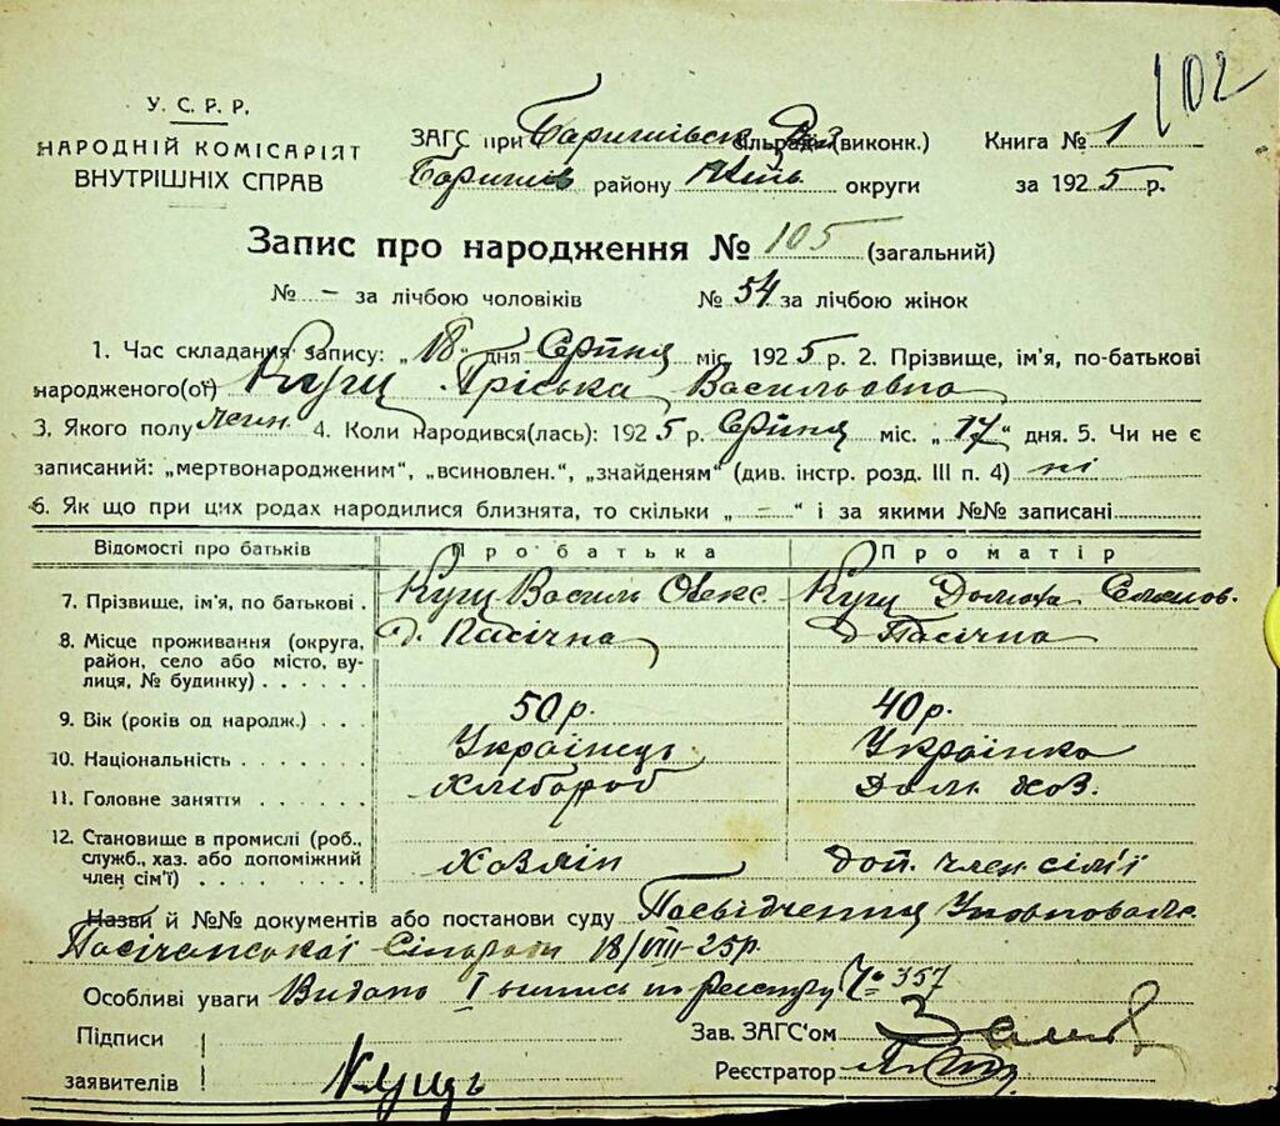 102
У. С. Р. Р.
НАРОДНІЙ КОМІСАРІЯТ
ВНУТРІШНІХ СПРАВ
ЗАГС при Баришівськ. сільраді (виконк.) Книга № 1
Баришів району Київ. округи за 1925 р.
Запис про народження № 105 (загальний)
№ – за лічбою чоловіків № 54 за лічбою жінок
1. Час складання запису: „18“ дня Серпня міс. 1925 р. 2. Прізвище, ім'я, по-батькові
народженого(ої) Кущ Пріська Васильовна
3. Якого полу жін. 4. Коли народився(лась): 1925 р. Серпня міс. „17“ дня. 5. Чи не є
записаний: „мертвонародженим“, „всиновлен.“, „знайденям“ (див. інстр. розд. III п. 4) ні
6. Як що при цих родах народилися близнята, то скільки „–“ і за якими №№ записані
Відомості про батьків Про батька Про матір
7. Прізвище, ім'я, по батькові . Кущ Василь Олекс. Кущ Семенов.
8. Місце проживання (округа, район, село або місто, вулиця, № будинку) . . . . . . д. Пасічна д. Пасічна
9. Вік (років од народж.) . . . 50 р. 40 р.
10. Національність . . . . . . . Українець Українка
11. Головне заняття . . . . . . Хлібороб Дом. хоз.
12. Становище в промислі (роб., служб., хаз. або допоміжний член сім'ї) . . . . . . . . Хозяїн доп. член сім'ї
Назви й №№ документів або постанови суду Посвідчення Уповноваж.
Пасічанської Сільради 18/VIII-25р.
Особливі уваги Видано І випис по реєстру № 357
Підписи
заявителів Кущь
Зав. ЗАГС'ом
Реєстратор